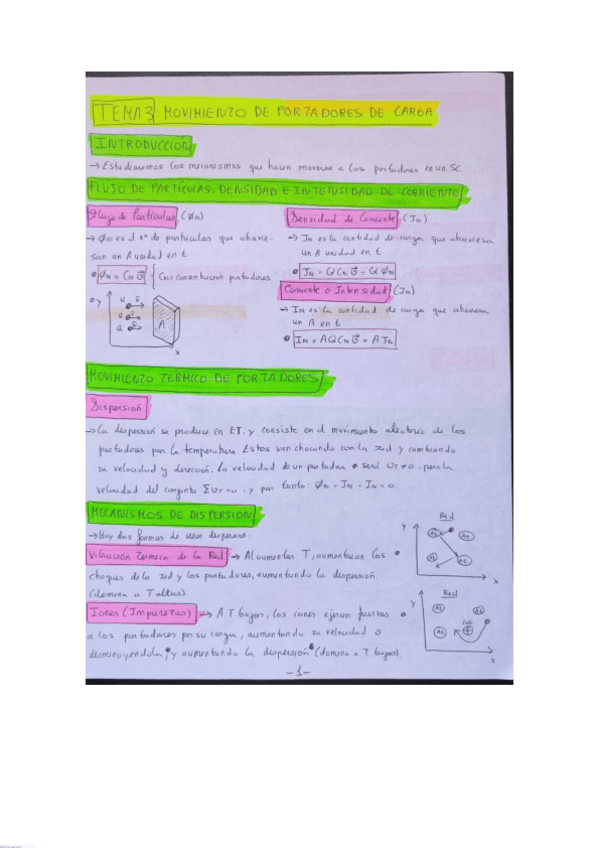 TEMA 3: MOVIMIENTO DE PORTADORES DE CARGA
INTRODUCCIÓN
→ Estudiaremos los mecanismos que hacen moverse a los portadores en un SC
FLUJO DE PARTÍCULAS, DENSIDAD E INTENSIDAD DE CORRIENTE
Flujo de Partículas (ϕN)
→ ϕN es el nº de partículas que atravie-
san un A unidad en t.
ϕN = CN v⃗ { CN: concentración portadores
Densidad de Corriente (JN)
→ JN es la cantidad de carga que atraviesa
un A unidad en t
JN = Q CN v⃗ = Q ϕN
Corriente o Intensidad (IN)
→ IN es la cantidad de carga que atraviesa
un A en t
IN = A Q CN v⃗ = A JN
Y
Q v⃗
Q v⃗
Q v⃗
A
X
MOVIMIENTO TÉRMICO DE PORTADORES
Dispersión
→ La dispersión se produce en ET. y consiste en el movimiento aleatorio de los
portadores por la temperatura. Estos van chocando con la red y cambiando
su velocidad y dirección. La velocidad de un portador será vT ≠ 0, pero la
velocidad del conjunto Σ vT = 0, y por tanto: ϕN = JN = IN = 0.
MECANISMOS DE DISPERSIÓN
→ Hay dos formas de dispersión:
Vibración Térmica de la Red → Al aumentar T, aumentarán los
choques de la red y los portadores, aumentando la dispersión.
(domina a T altas)
Red
Y
At
At
At
At
X
Iones (Impurezas) → A T bajas, los iones ejercen fuerzas
a los portadores por su carga, aumentando su velocidad o
disminuyéndola, y aumentando la dispersión (domina a T bajas)
Red
Y
At
At
At
X
-1-